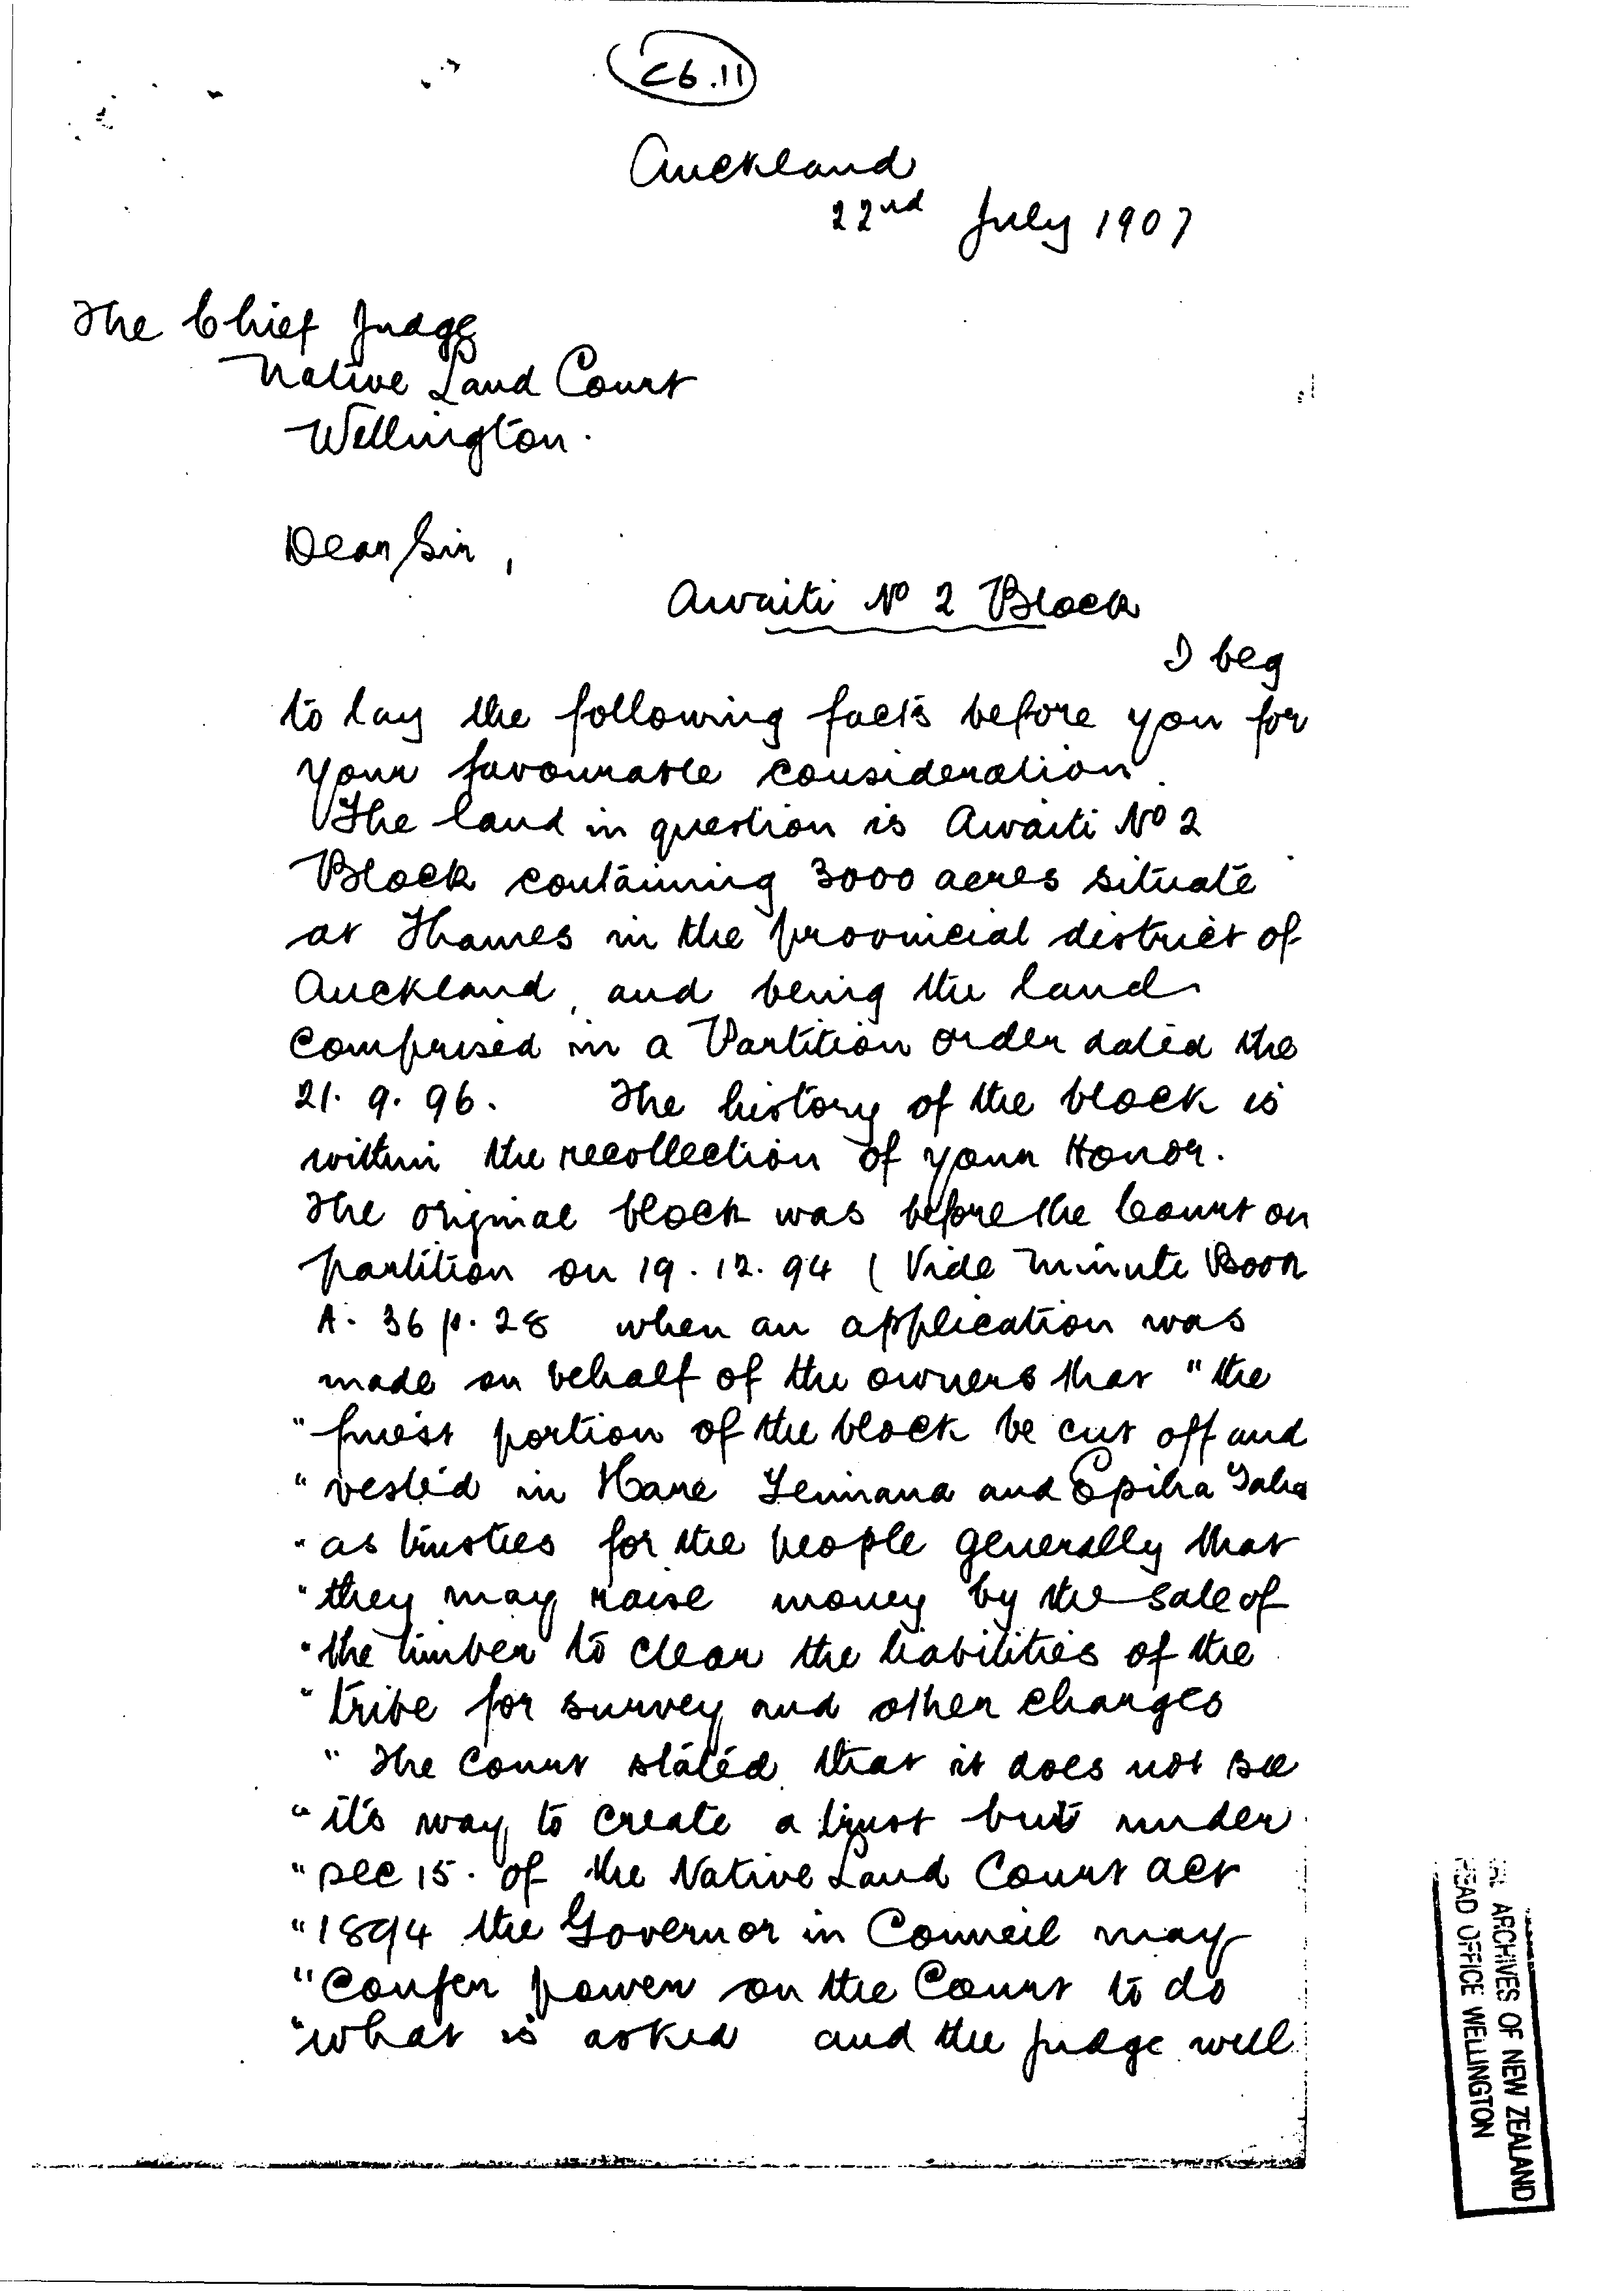 C6.11
Auckland
22nd July 1907
The Chief Judge
Native Land Court
Wellington.
Dear Sir,
Awaiti No 2 Block
I beg
to lay the following facts before you for
your favourable consideration.
The land in question is Awaiti No 2
Block containing 3000 acres situate
at Thames in the provincial district of
Auckland, and being the land
comprised in a Partition order dated the
21. 9. 96. The history of the block is
within the recollection of your Honor.
The original block was before the Court on
partition on 19. 12. 94 ( Vide Minute Book
A. 36 p. 28 when an application was
made on behalf of the owners that "the
" finest portion of the block be cut off and
" vested in Hare Teimana and Epiha Taha
" as trustees for the people generally that
" they may raise money by the sale of
" the timber to clear the liabilities of the
" tribe for survey and other charges
" The Court stated that it does not see
" it's way to create a trust but under
" sec 15. of the Native Land Court Act
" 1894 the Governor in Council may
" Confer power on the Court to do
" what is asked and the Judge will
ARCHIVES OF NEW ZEALAND
HEAD OFFICE WELLINGTON